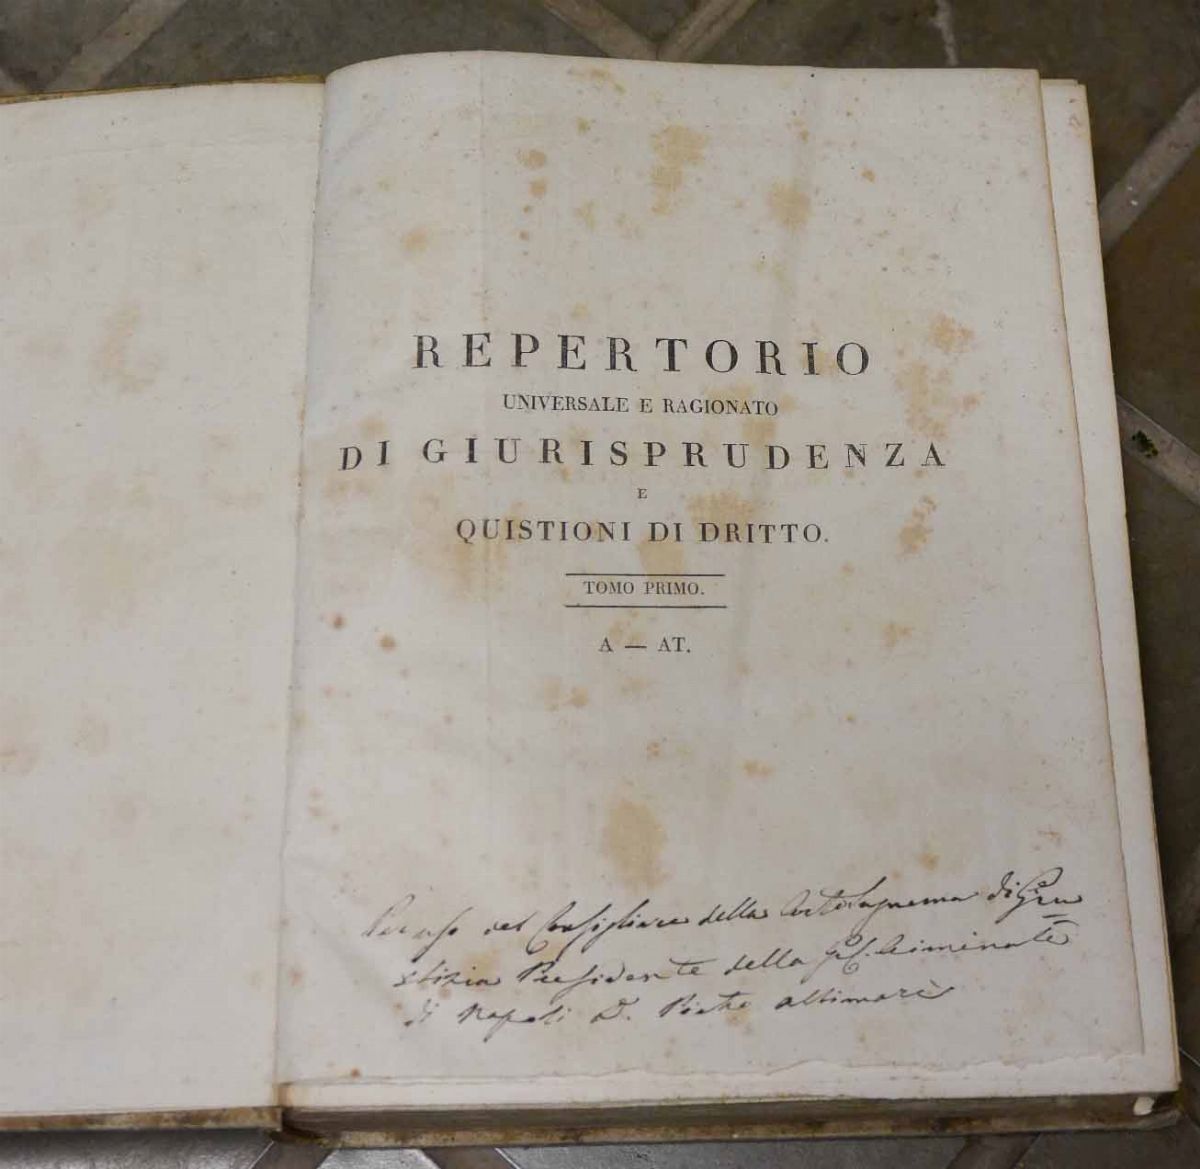 REPERTORIO
UNIVERSALE E RAGIONATO
DI GIURISPRUDENZA
E
QUISTIONI DI DRITTO.
TOMO PRIMO.
A — AT.
Per uso del Consigliere della Corte Suprema di Giu
stizia Presidente della Criminale
di Napoli D. Altimari